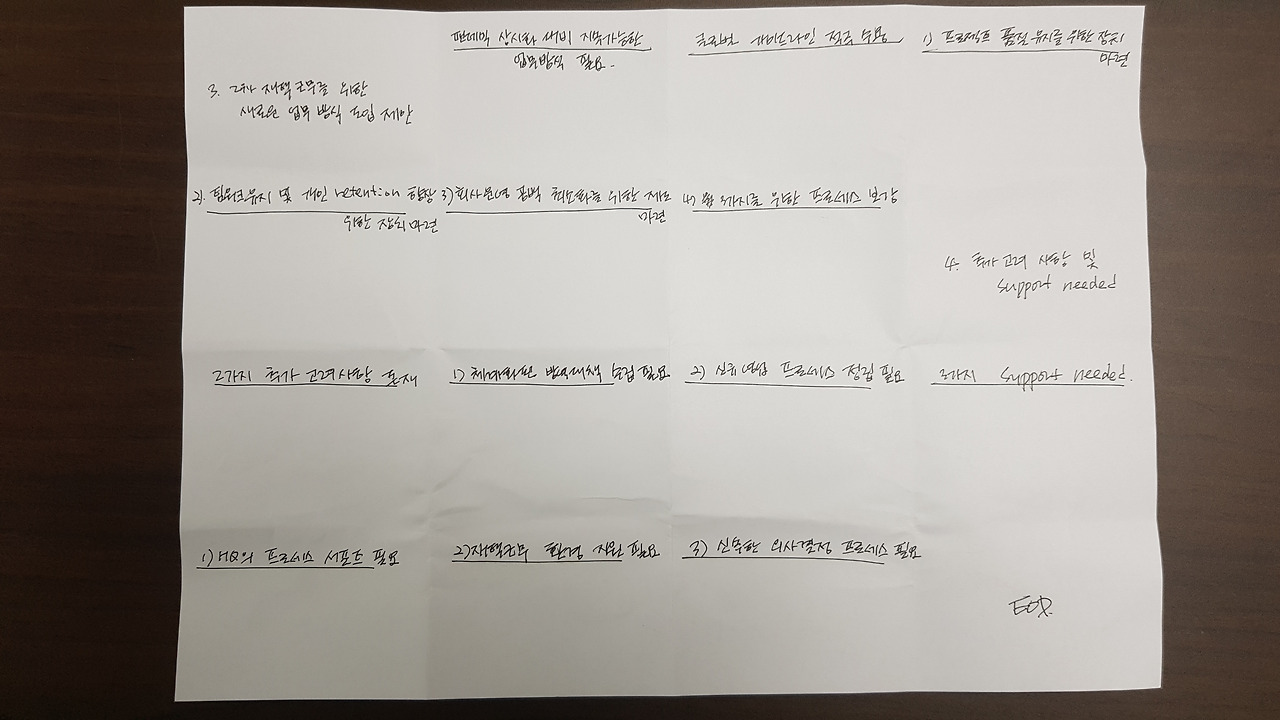 3. 2차 재택근무를 위한
새로운 업무 방식 도입 제안
팬데믹 상시화 대비 지속가능한
업무방식 필요.
글로벌 가이드라인 적극 수용
1) 프로젝트 품질 유지를 위한 장치
마련
2) 팀워크 유지 및 개인 retention 향상
위한 장치 마련
3) 회사운영 공백 최소화를 위한 제도
마련
4) 위를 위한 프로세스 보강
4. 추가 고려 사항 및
support needed
2가지 추가 고려사항 존재
1) 체계화된 방역대책 수립 필요
2) 신규 영업 프로세스 정립 필요
3가지 support needed.
1) HQ의 프로세스 서포트 필요
2) 재택근무 환경 지원 필요
3) 신속한 의사결정 프로세스 필요
EOD.